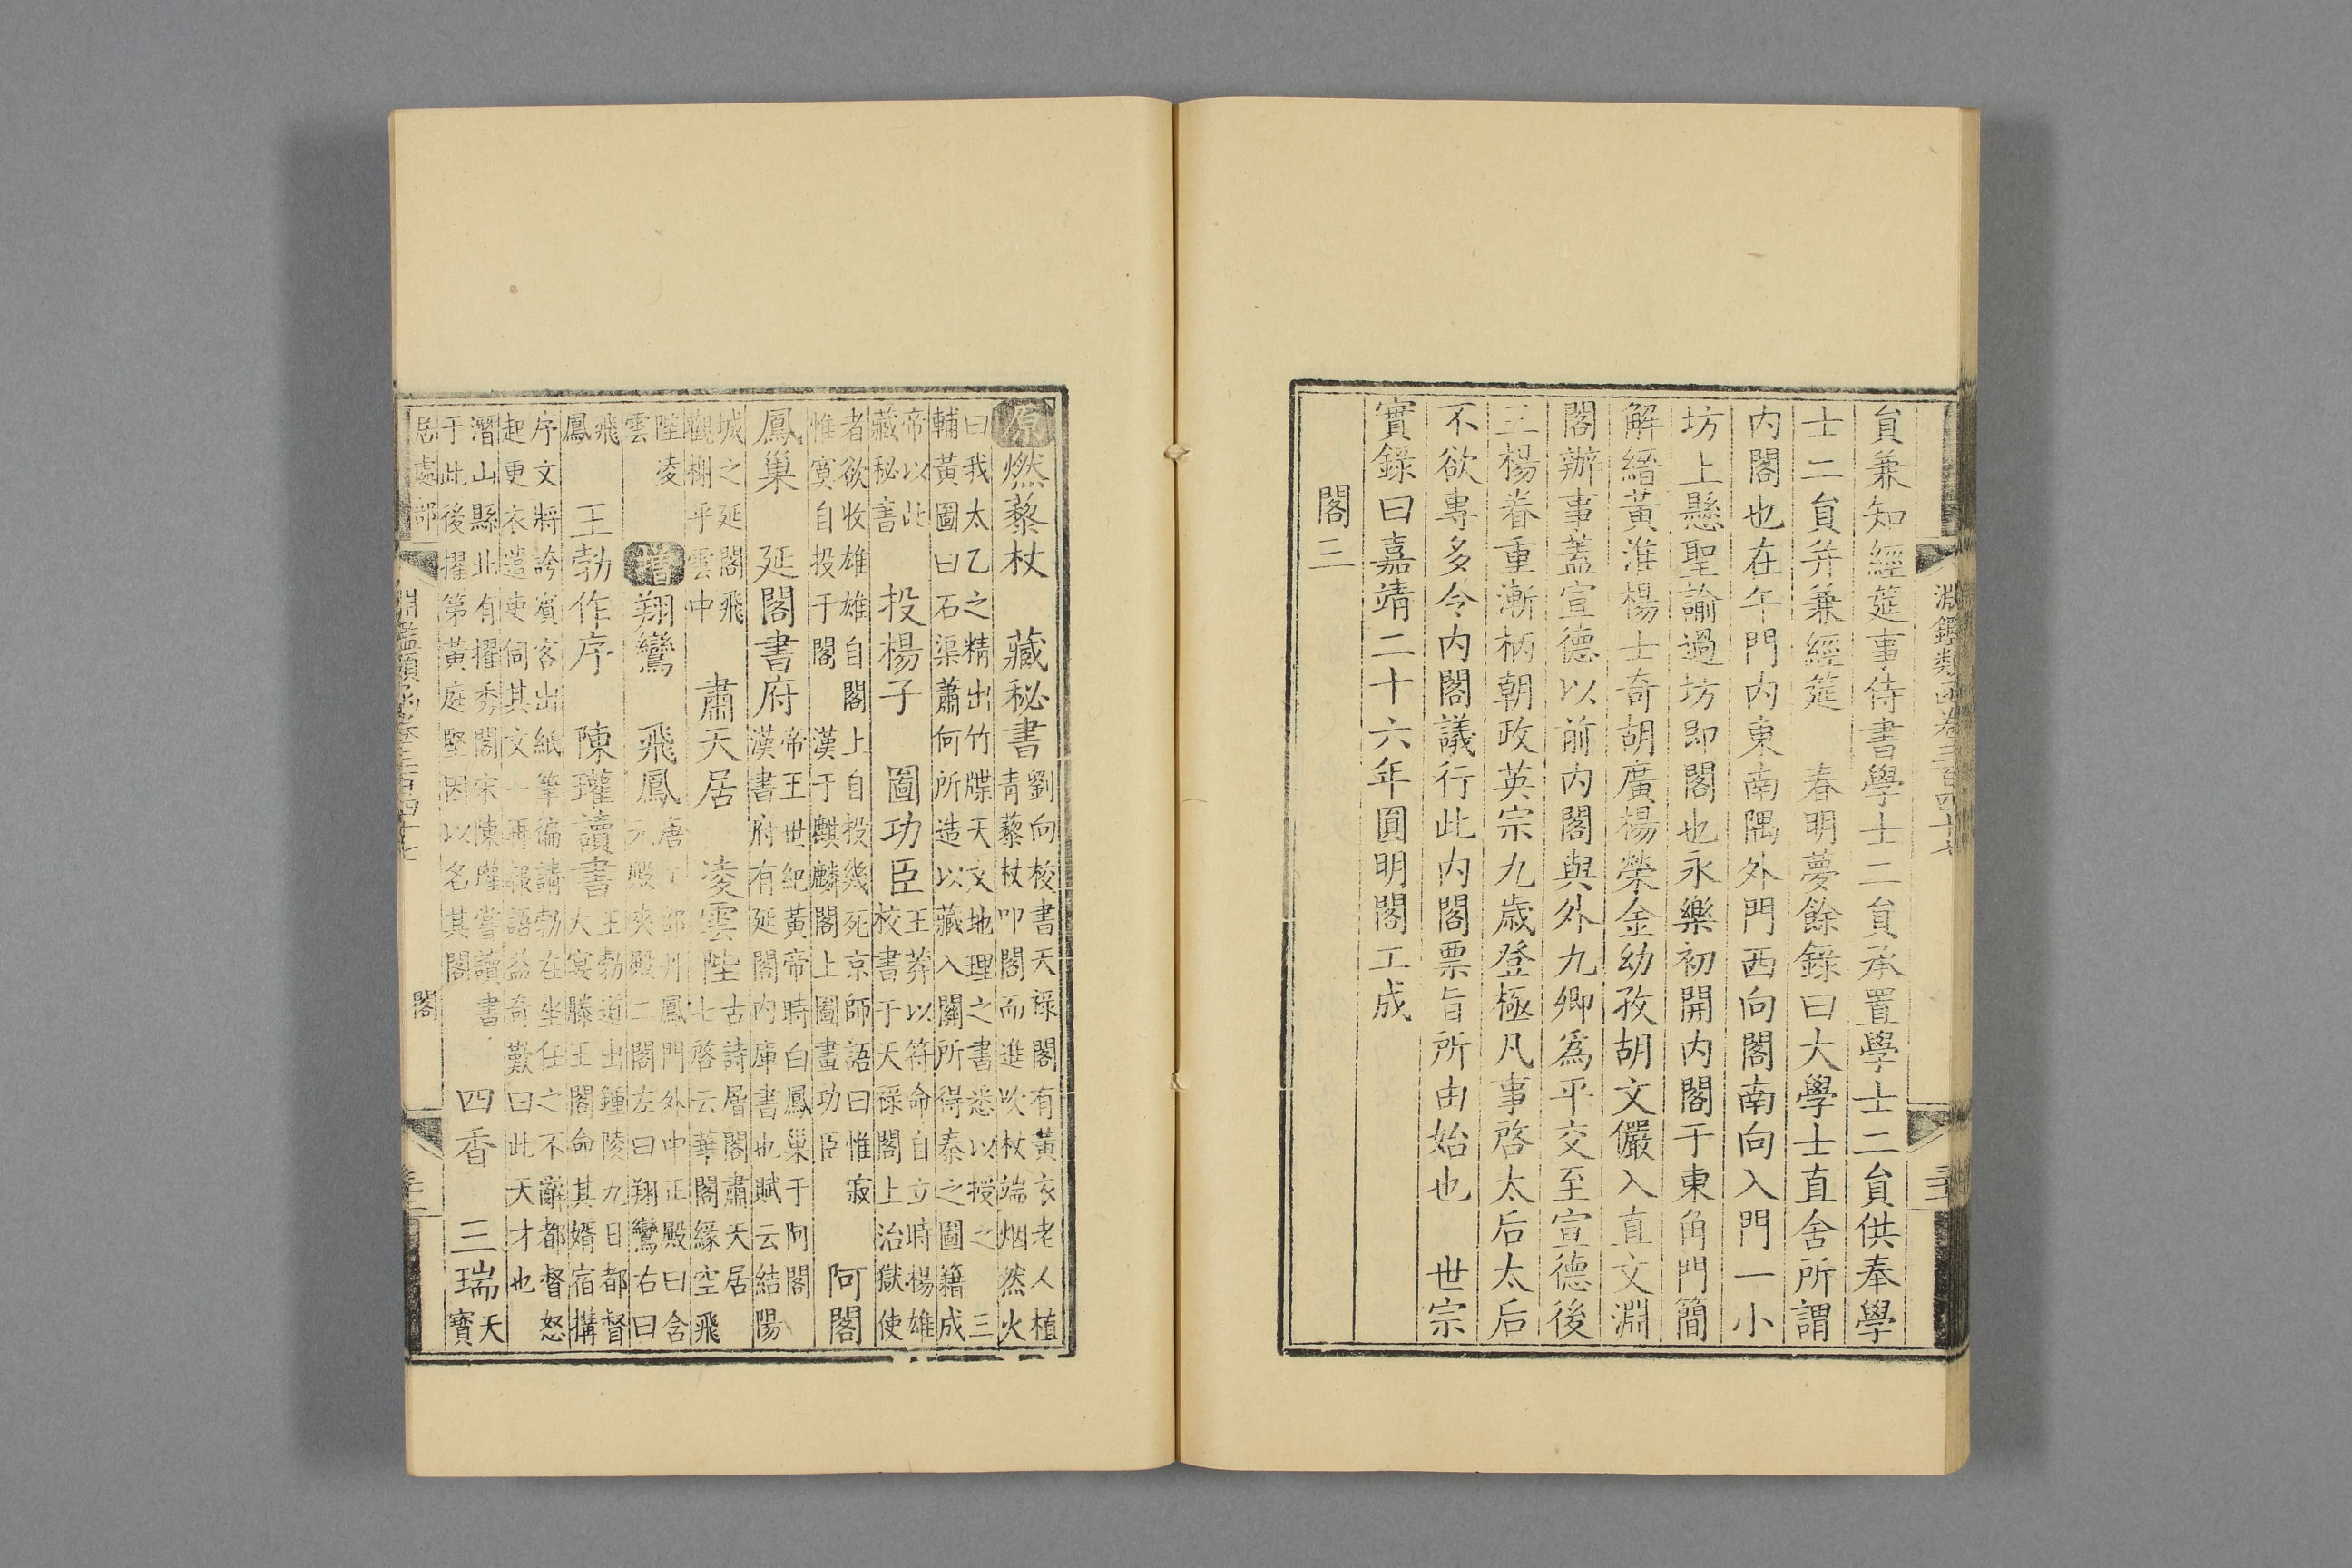 淵鑑類函卷三百四十七
員兼知經筵事侍書學士二員承置學士二員供奉學
士二員并兼經筵　春明夢餘錄曰大學士直舍所謂
内閣也在午門内東南隅外門西向閣南向入門一小
坊上懸聖諭過坊即閣也永樂初開内閣于東角門簡
解縉黃淮楊士奇胡廣楊榮金幼孜胡文儼入直文淵
閣辦事蓋宣德以前内閣與外九卿爲平交至宣德後
三楊眷重漸柄朝政英宗九歲登極凡事啓太后太后
不欲專多令内閣議行此内閣票旨所由始也　世宗
實錄曰嘉靖二十六年圓明閣工成
閣三
原燃藜杖　藏秘書劉向校書天祿閣有黃衣老人植
青藜杖叩閣而進吹杖端烟然火
曰我太乙之精出竹牒天文地理之書悉以授之　三
輔黃圖曰石渠蕭何所造以藏入關所得秦之圖籍成
帝以此
藏秘書　投楊子　圖功臣王莽以符命自立時楊雄
校書于天祿閣上治獄使
者欲收雄雄自閣上自投幾死京師語曰惟寂
惟寞自投于閣　漢于麒麟閣上圖畫功臣　阿閣
鳳巢　延閣書府帝王世紀黃帝時白鳳巢于阿閣
漢書府有延閣内庫書也賦云結陽
城之延閣飛
觀榭乎雲中　肅天居　凌雲陛古詩層閣肅天居
七啓云華閣緣空飛
陛凌
雲　增翔鸞　飛鳳唐丹鳳門外中正殿曰含
元殿夾殿二閣左曰翔鸞右曰
飛
鳳　王勃作序　陳瓘讀書王勃道出鍾陵九日都督
大宴滕王閣命其婿宿搆
序文將誇賓客出紙筆徧請勃在坐任之不辭都督怒
起更衣遣吏伺其文一再報語益奇歎曰此天才也
潛山縣北有擢秀閣宋陳瓘嘗讀書
于此後擢第黃庭堅因以名其閣　四香　三瑞天
寶
居處部
淵鑑類函卷三百四十七
閣